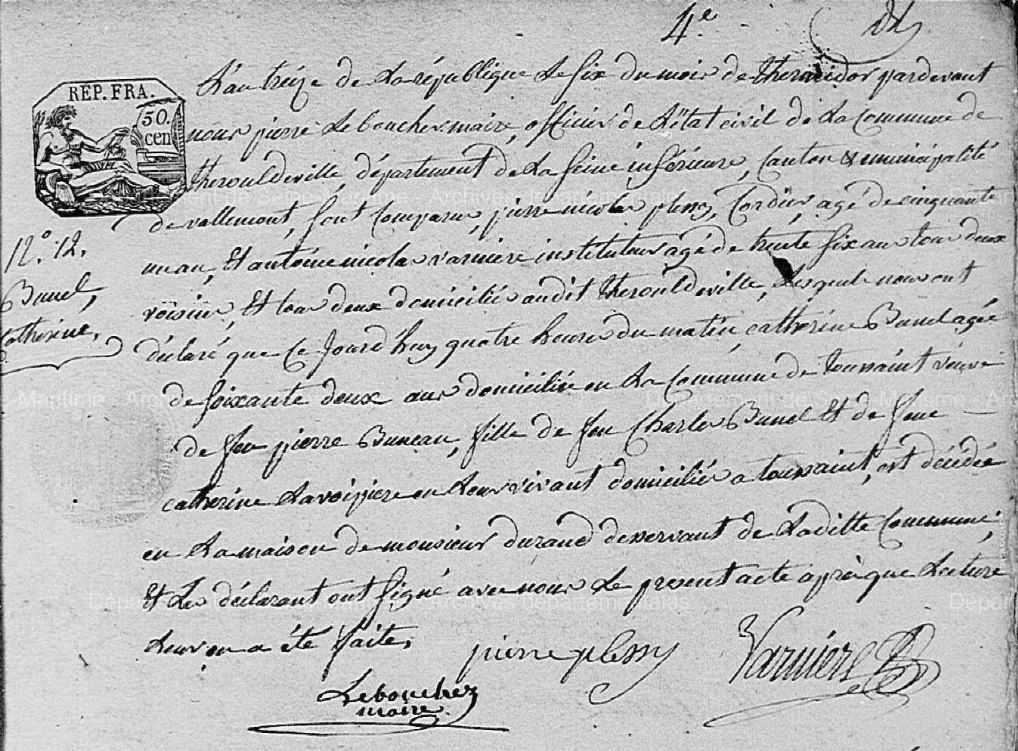 4e
REP. FRA.
50.
cen
L'an treize de La république Le six du mois de thermidor pardevant
nous pierre Leboucher maire, officier de L'état civil de La Commune de
therouldeville, département de La Seine inférieure, Canton & municipalité
de vallemont, sont Comparus, pierre nicolas plessy, Cordier, agé de cinquante
un an, Et antoine nicolas varniere instituteur agé de trente six ans tous deux
voisins, Et tous deux domiciliés audit therouldeville, Lesquels nous ont
déclaré que Ce jourd'huy quatre heures du matin, catherine Bunel agée
de soixante deux ans domiciliée en La Commune de toussaint veuve
de feu pierre Buneau, fille de feu Charles Bunel Et de feue
catherine Lavoipiere en Leur vivant domiciliés a toussaint, est décédée
en La maison de monsieur durand desservant de Laditte Commune;
Et Les déclarant ont signé avec nous Le present acte après que Lecture
Leur en a été faite,
N°. 12.
Bunel,
Catherine,
pierre plessy
Varniere
Leboucher
maire